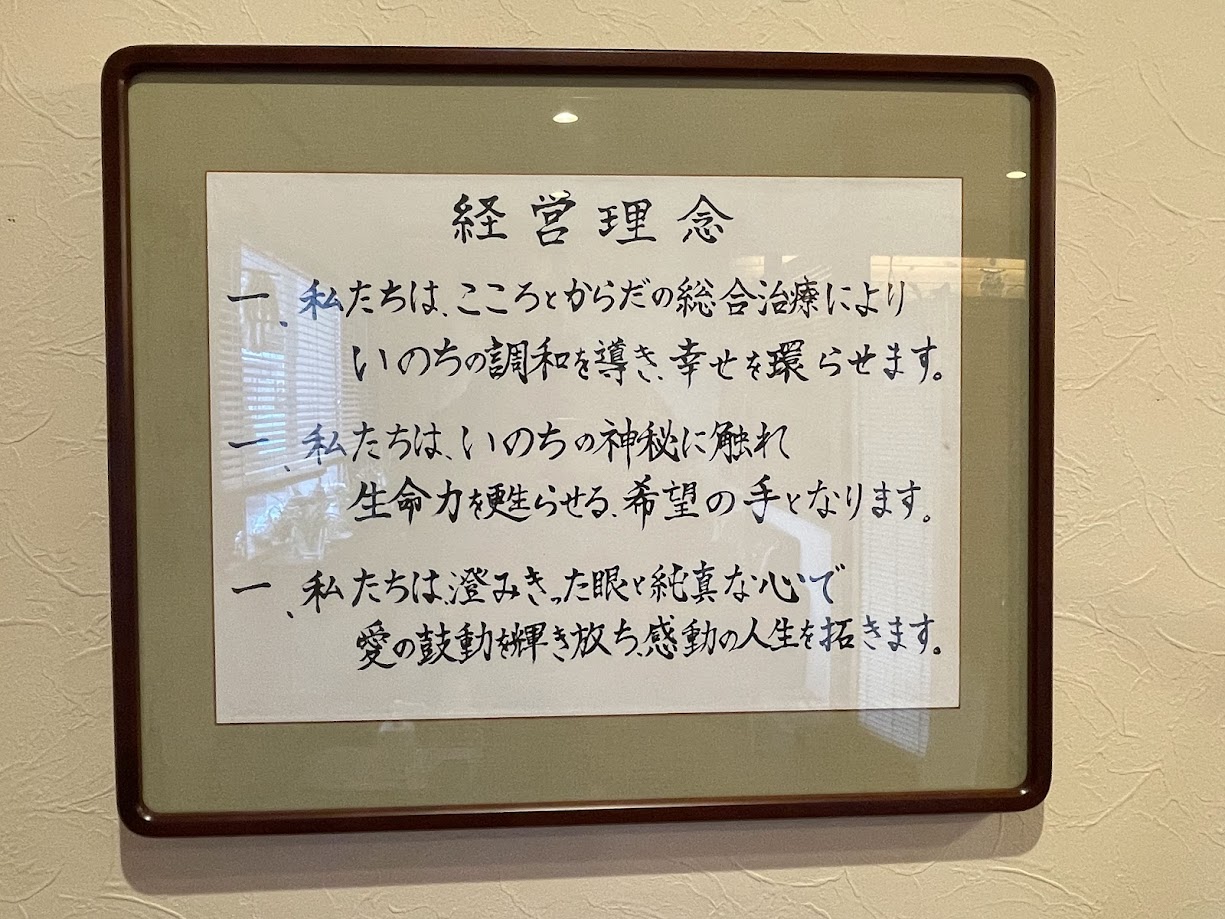 経営理念
一、私たちは、こころとからだの総合治療により
いのちの調和を導き、幸せを環らせます。
一、私たちは、いのちの神秘に触れ
生命力を甦らせる、希望の手となります。
一、私たちは、澄みきった眼と純真な心で
愛の鼓動を輝き放ち、感動の人生を拓きます。